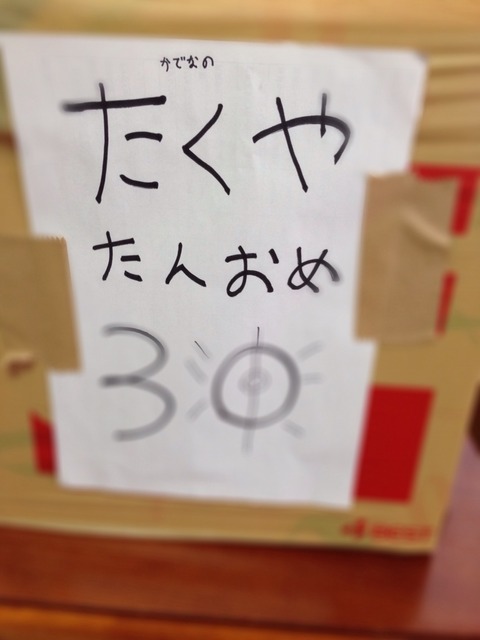 かでなの
たくや
たんおめ
30